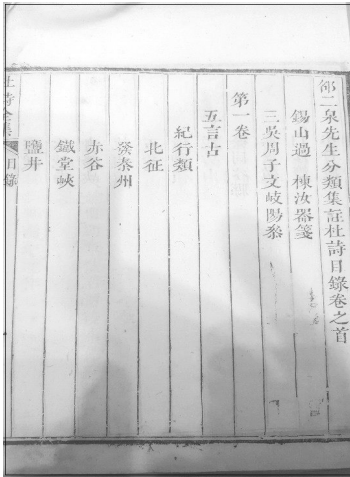 邵二泉先生分類集註杜詩目錄卷之首
錫山過 棟汝器箋
三吳周子文岐陽叅
第一卷
五言古
紀行類
北征
發秦州
赤谷
鐵堂峽
鹽井
杜詩全集 目錄